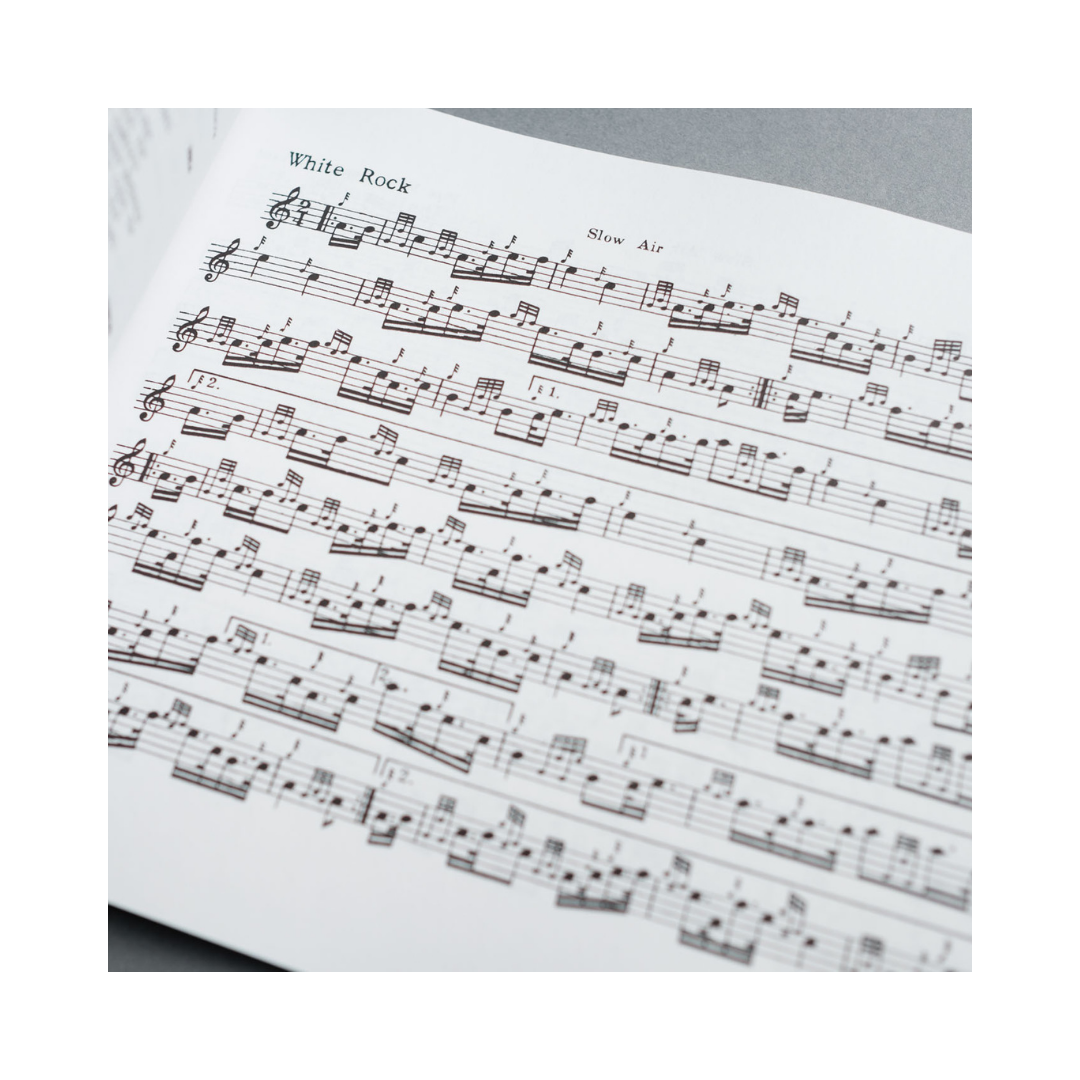 White Rock
Slow Air
2
4
1.
2.
1.
2.
1
2.